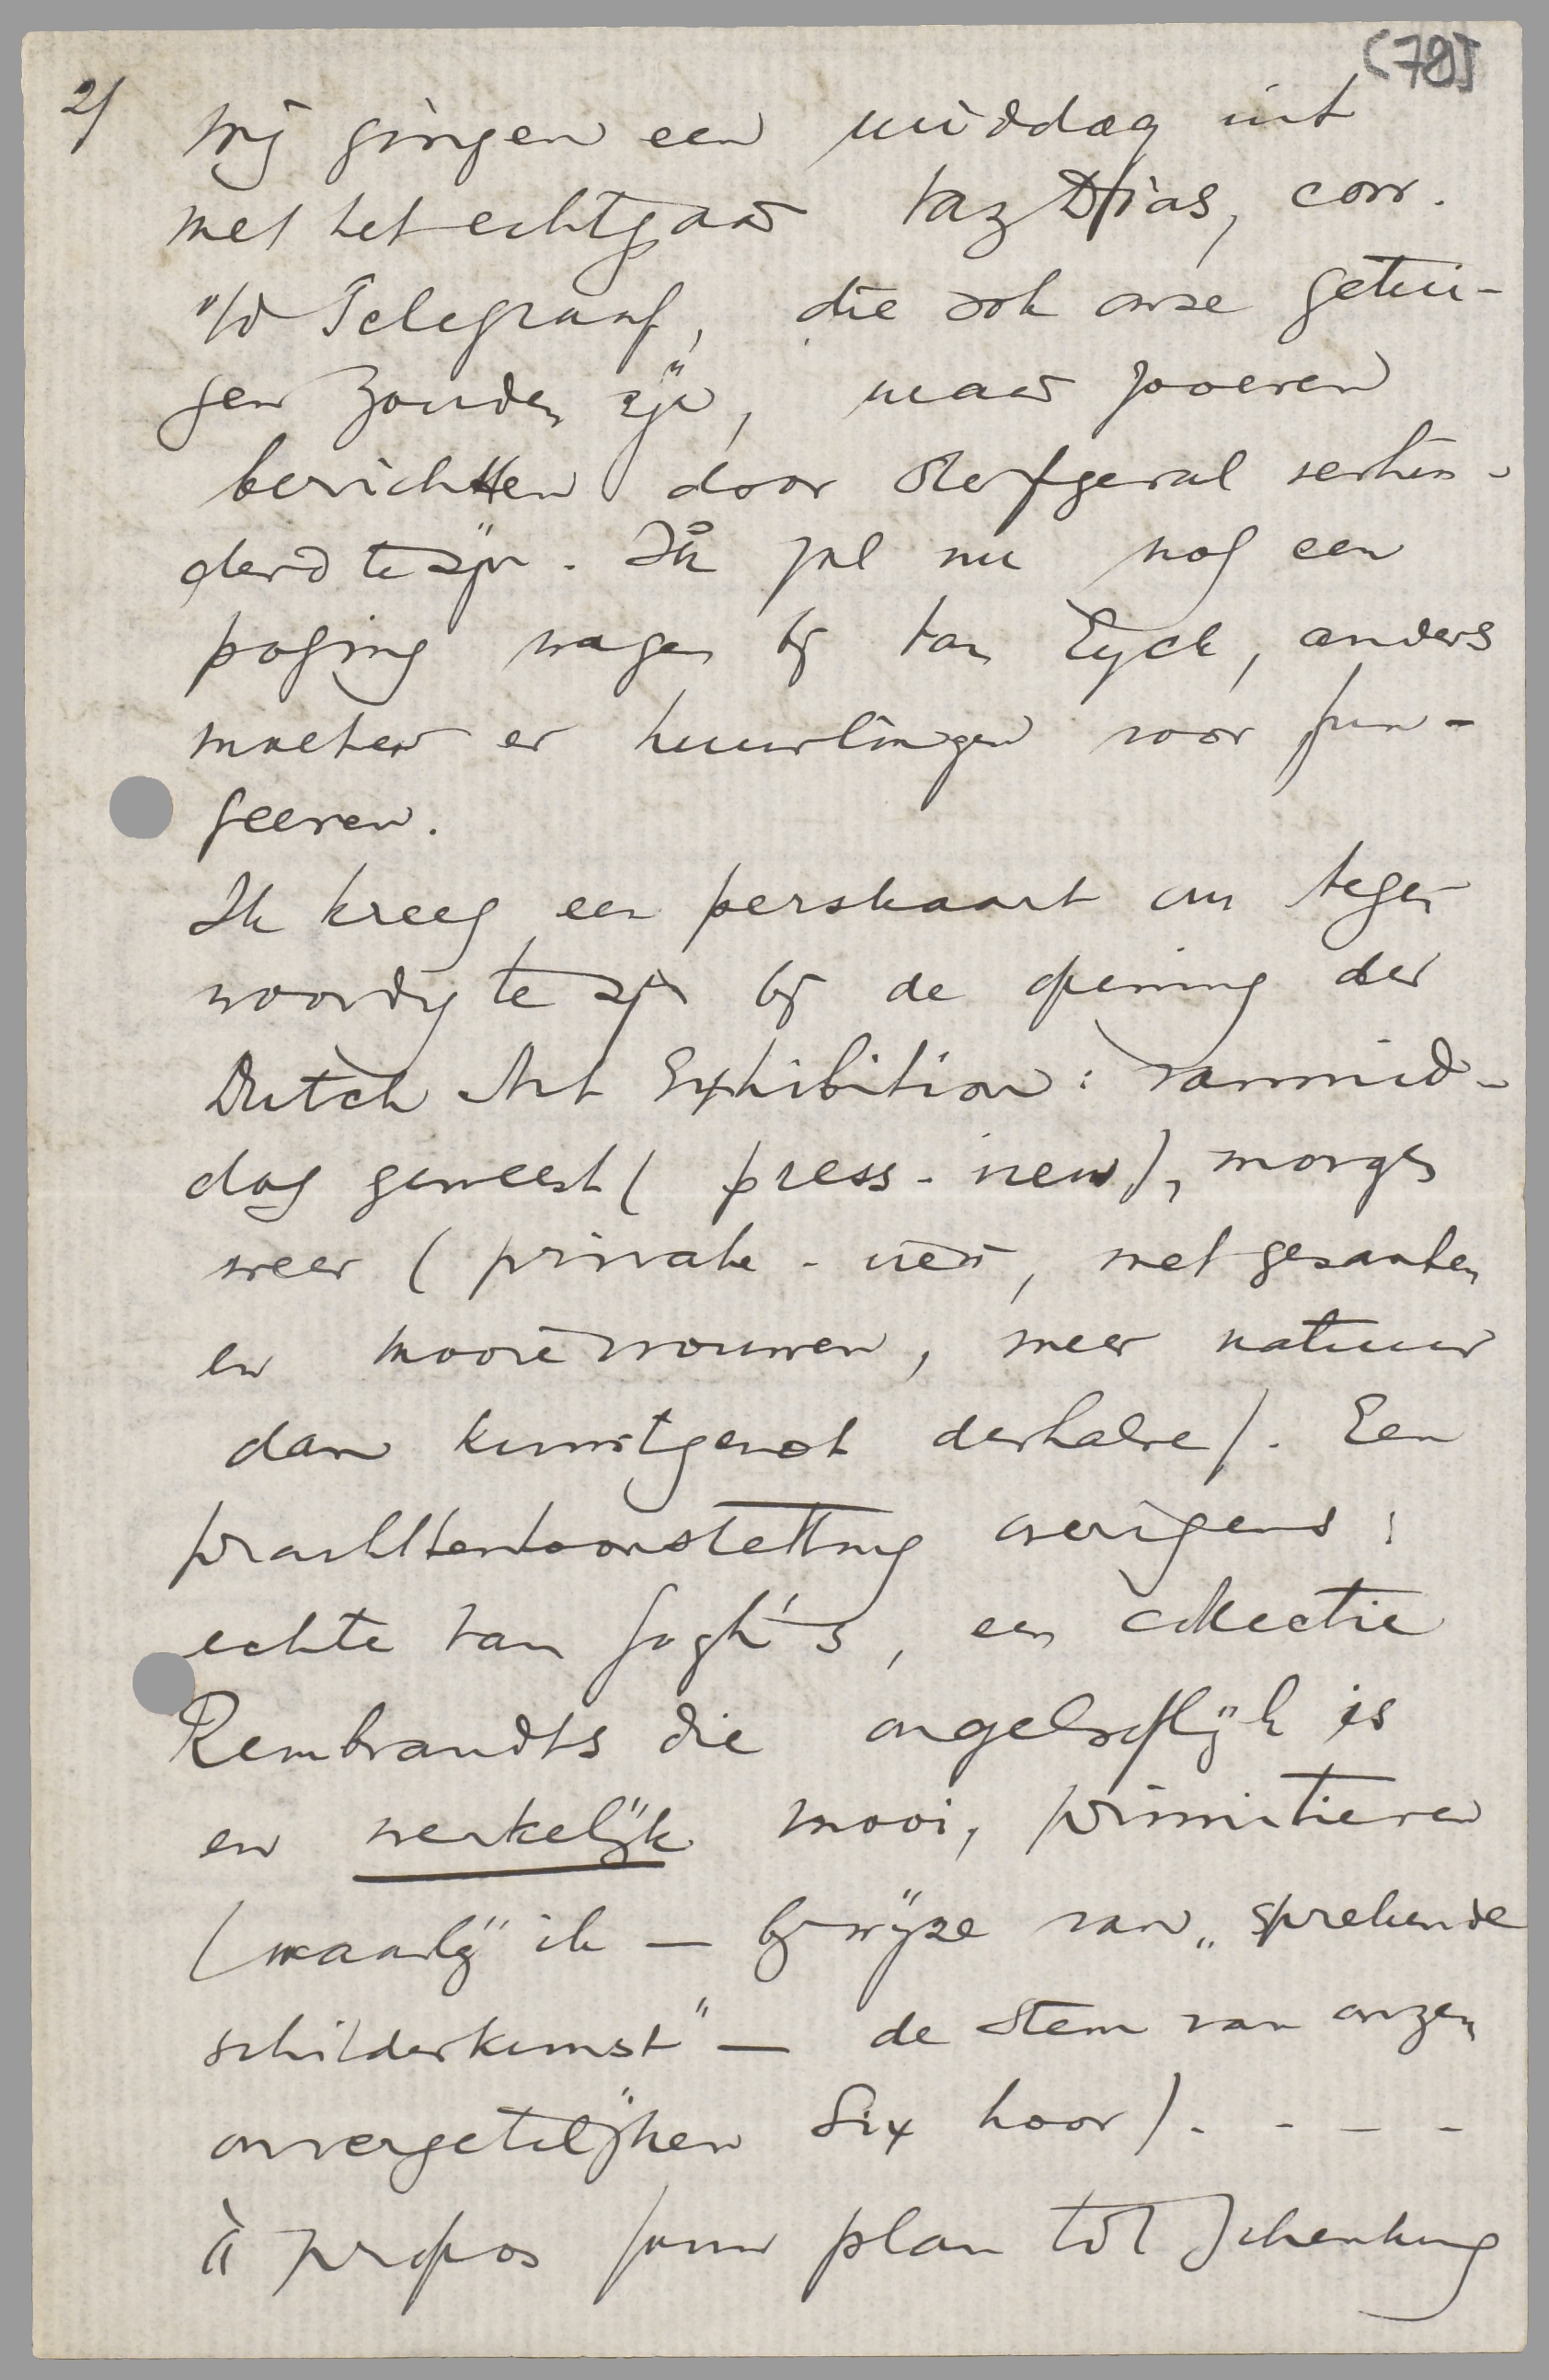 (78)
2/ Wij gingen een middag uit
met het echtpaar Vaz Dias, corr.
v/d Telegraaf, die ook onze getui-
gen zouden zijn, maar zooeven
berichtten door sterfgeval verhin-
derd te zijn. Ik zal nu nog een
poging wagen bij Van Eyck, anders
moeten er huurlingen voor fun-
geeren.
Ik kreeg een perskaart om tegen
woordig te zijn bij de opening der
Dutch Art Exhibition: vanmid-
dag geweest (press-view), morgen
weer (private-view, met gezanten
en mooie vrouwen, meer natuur
dan kunstgenot derhalve). Een
prachttentoonstelling overigens:
echte van Gogh's, een collectie
Rembrandts die ongelooflijk is
en werkelijk mooi, primitieven
(waarbij ik — bij wijze van „sprekende
schilderkunst" — de stem van onzen
onvergetelijken Six hoor). - - -
À propos jouw plan tot schenking